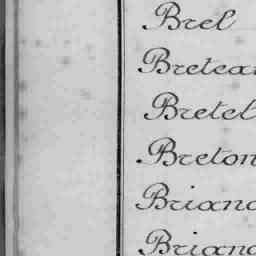 Brel
Bretea
Bretel
Breton
Brian
Brian